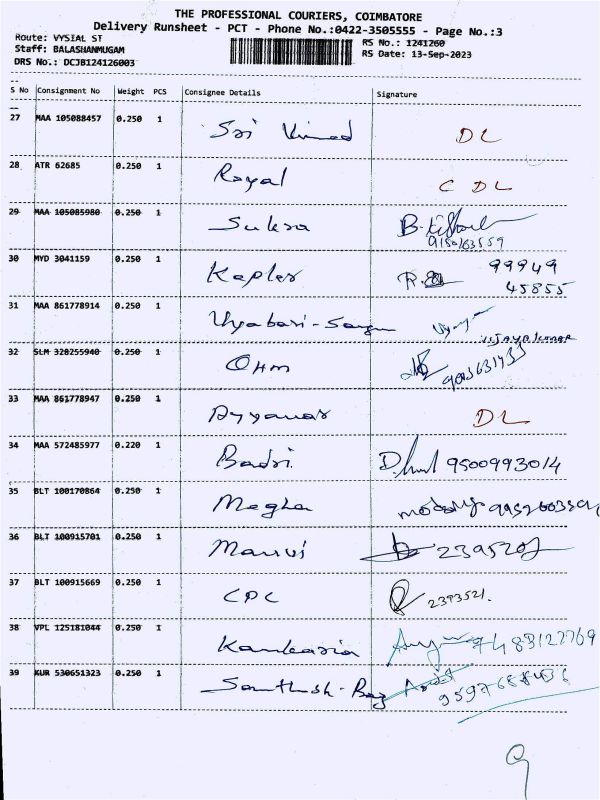 THE PROFESSIONAL COURIERS, COIMBATORE
Delivery Runsheet - PCT - Phone No.:0422-3505555 - Page No.:3
Route: VYSIAL ST RS No.: 1241260
Staff: BALASHANMUGAM RS Date: 13-Sep-2023
DRS No.: DCJB124126003
S No Consignment No Weight PCS Consignee Details Signature
27 MAA 105088457 0.250 1 Sri Vinod DL
28 ATR 62685 0.250 1 Royal C DL
29 MAA 105085980 0.250 1 Sukra B.
30 MYD 3041159 0.250 1 Kepler 99949
45855
31 MAA 861778914 0.250 1 Vyabari-
VIJAYAKUMAR
32 SLM 328255940 0.250 1 OHM
33 MAA 861778947 0.250 1 Ayyanar DL
34 MAA 572485977 0.220 1 Badri 9500993014
35 BLT 100170864 0.250 1 Megha
36 BLT 100915701 0.250 1
37 BLT 100915669 0.250 1 CPC 2393521.
38 VPL 125181044 0.250 1 Kankaria
39 KUR 530651323 0.250 1 Santhosh-